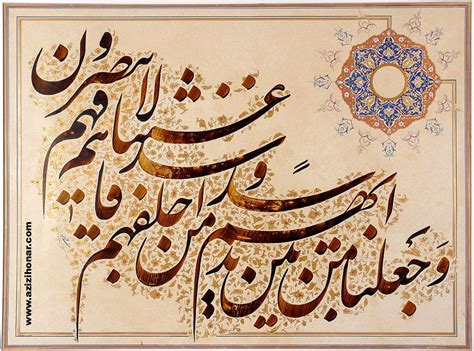 وَجعلنا من بین ایدیهم
سداً و من خلفهم
سدا فاغشیناهم فهم
لا یبصرون
www.azizihonar.com